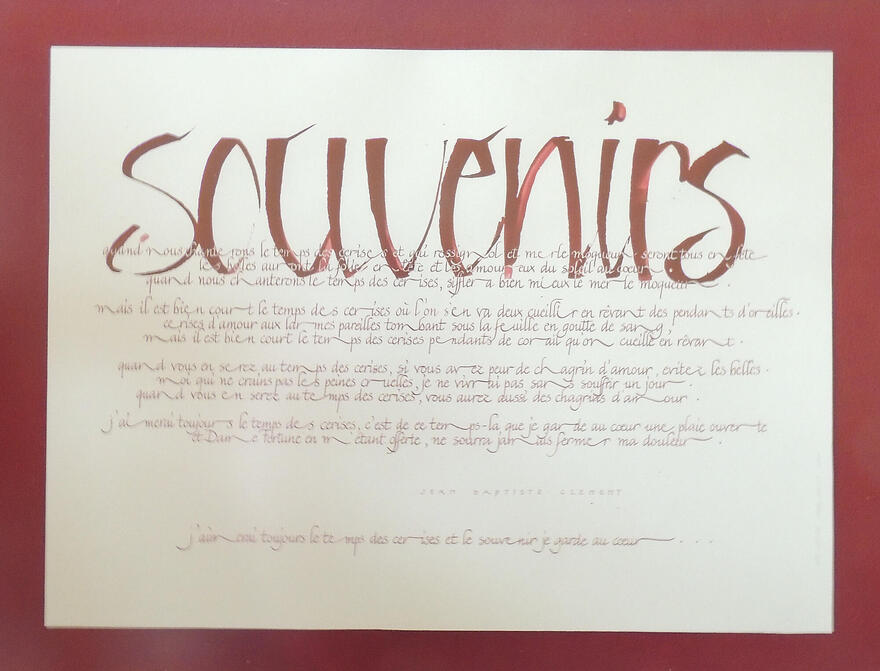 souvenirs
quand nous chanterons le temps des cerises et gai rossignol et merle moqueur seront tous en fête
les belles auront la folie en tête et les amoureux du soleil au coeur
quand nous chanterons le temps des cerises, sifflera bien mieux le merle moqueur.
mais il est bien court le temps des cerises où l'on s'en va deux cueillir en rêvant des pendants d'oreilles.
cerises d'amour aux larmes pareilles tombant sous la feuille en goutte de sang,
mais il est bien court le temps des cerises pendants de corail qu'on cueille en rêvant.
quand vous en serez au temps des cerises, si vous avez peur de chagrin d'amour, evitez les belles.
moi qui ne crains pas les peines cruelles, je ne vivrai pas sans souffrir un jour.
quand vous en serez au temps des cerises, vous aurez aussi des chagrins d'amour.
j'aimerai toujours le temps des cerises, c'est de ce temps-la que je garde au cœur une plaie ouverte
et Dame Fortune en m'étant offerte, ne saura jamais fermer ma douleur.
JEAN BAPTISTE CLEMENT
j'aimerai toujours le temps des cerises et le souvenir je garde au cœur . . .